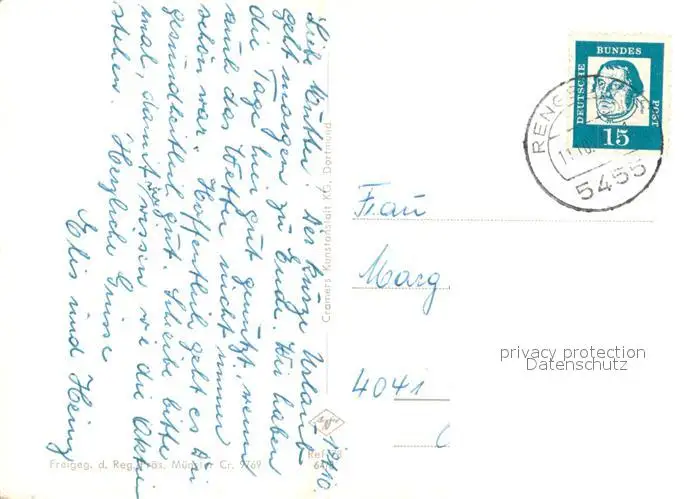 1.10.
Liebe Mutti! Der kurze Urlaub
geht morgen zu Ende. Wir haben
die Tage hier gut genutzt, wenn
auch das Wetter nicht immer
schön war. Hoffentlich geht es Dir
gesundheitlich gut. Schreibe bitte
mal, damit wir wissen wie die Aktien
stehen. Herzliche Grüsse
Elis und Heinz
Cramers Kunstanstalt KG. Dortmund
Freigeg. d. Reg. Präs. Münster Cr. 9769
DEUTSCHE BUNDES POST
15
RENGS
5455
Frau
Marg
4041
privacy protection
Datenschutz